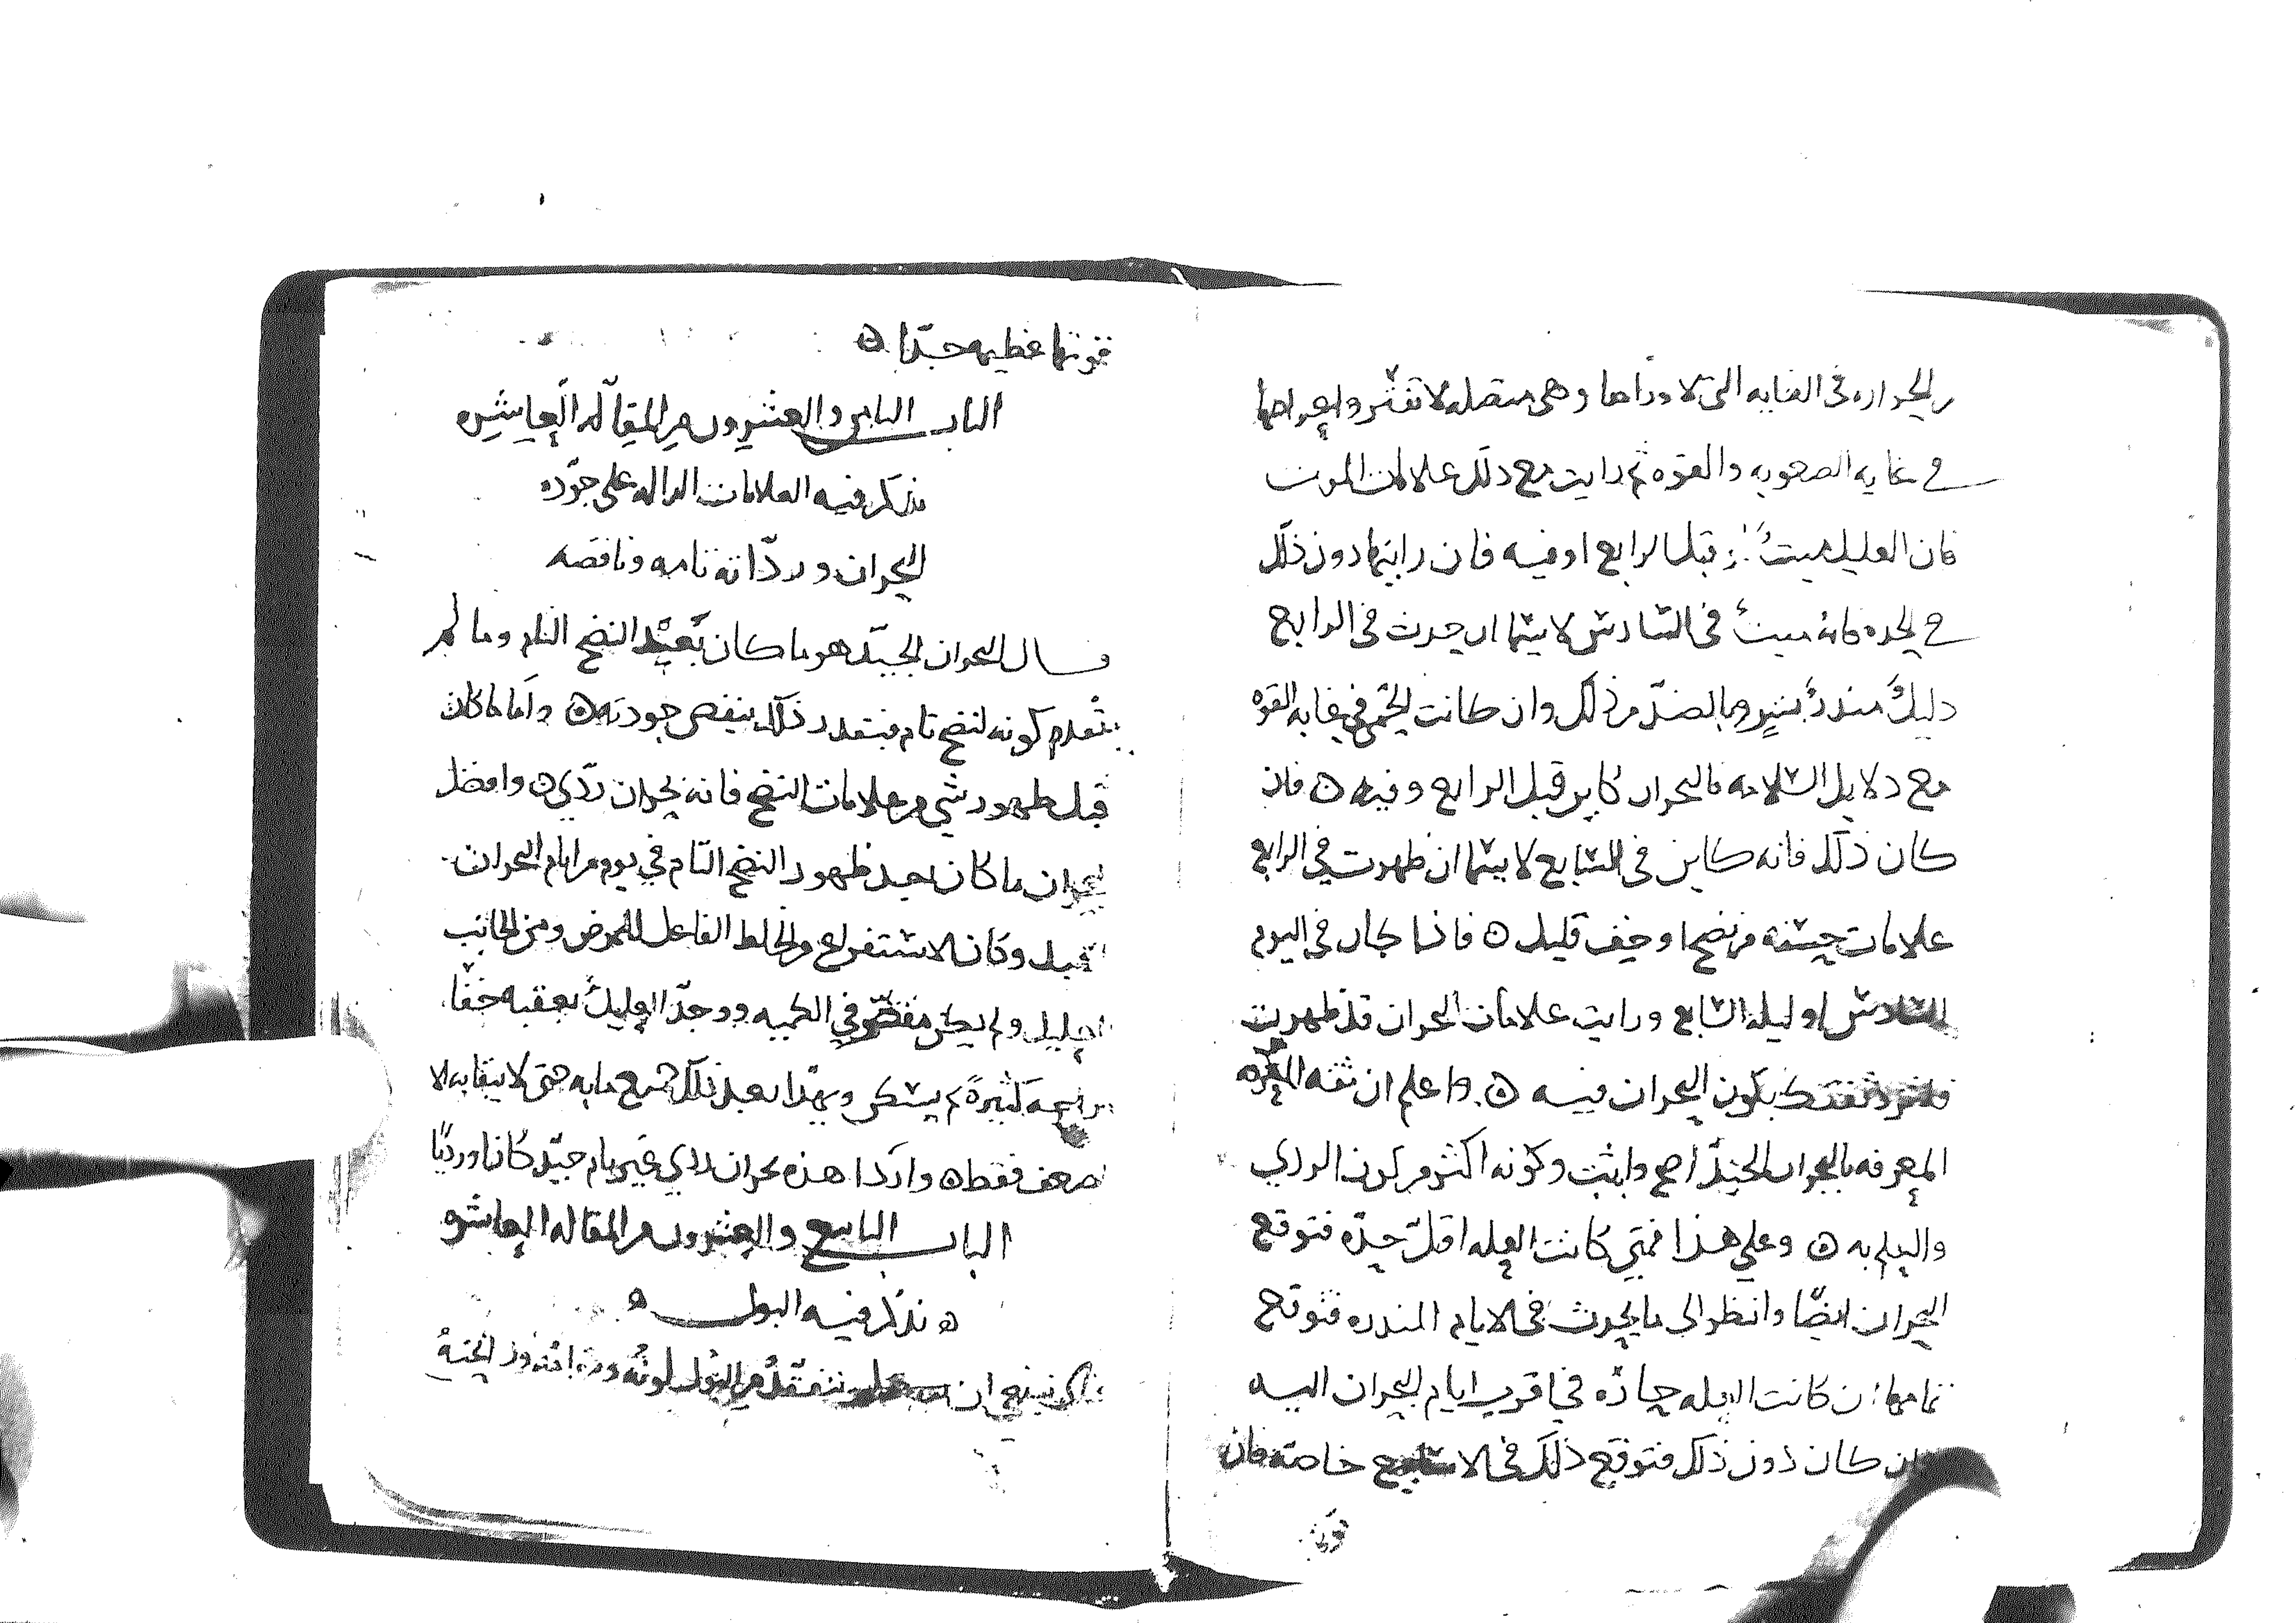 من الحراره في الغايه التي لا وراها وهي متصله لا تفتر واعراضها
في غايه الصعوبه والقوه ثم رايت مع ذلك علامات الموت
فان العليل ميت قبل الرابع او فيه فان رايتها دون ذلك
في الحده فانه ميت في السادس لا سيما ان حدث في الرابع
دليل منذر بشر وبالضد من ذلك وان كانت الحمى في غايه القوه
مع دلايل السلامه فالبحران كاين قبل الرابع وفيه ه فان
كان ذلك فانه كاين في السابع لا سيما ان ظهرت في الرابع
علامات حسنه من نضج او خف قليل ه فاذا كان في اليوم
السادس او ليله السابع ورايت علامات البحران قد ظهرت
ثقتك بكون البحران فيه ه واعلم ان ثقه
المعرفه بالبحران الجيد اصح واثبت وكونه اكثر من كون الردي
والعلم به ه وعلى هذا فمتى كانت العله اقل حده فتوقع
البحران ايضا وانظر الى ما يحدث في الايام المنذره فتوقع
تمامها ان كانت العله حاده في اقرب ايام البحران اليه
وان كان دون ذلك فتوقع ذلك في الاسابيع خاصه فان
قوتها
قوتها عظيمه جدا ه
الباب الثامن والعشرون من المقاله العاشره
نذكر فيه العلامات الداله على جوده
البحران ورداته تامه وناقصه
قال البحران الجيد هو ما كان بعيد النضج التام وما لم
يتقدم كونه لنضج تام فبقدر ذلك ينقص جودته ه واما ما كان
قبل ظهور شي من علامات النضج فانه بحران ردي ه وافضل
البحران ما كان بعد ظهور النضج التام في يوم من ايام البحران
وكان الاستفراغ من الخلط الفاعل للمرض ومن الجانب
العليل ولم يكن مقصر في الكميه ووجد العليل بعقبه خفا
وراحه كثيرة ثم يسكن ويهدا بعد ذلك جميع ما به حتى لا يبقا به الا
ضعف فقط ه وارد هذه بحران ردي غير تام جيد كانا ورديا
الباب التاسع والعشرون من المقاله العاشره
ه نذكر فيه البول ه
ينبغي ان تتفقد من البول لونه